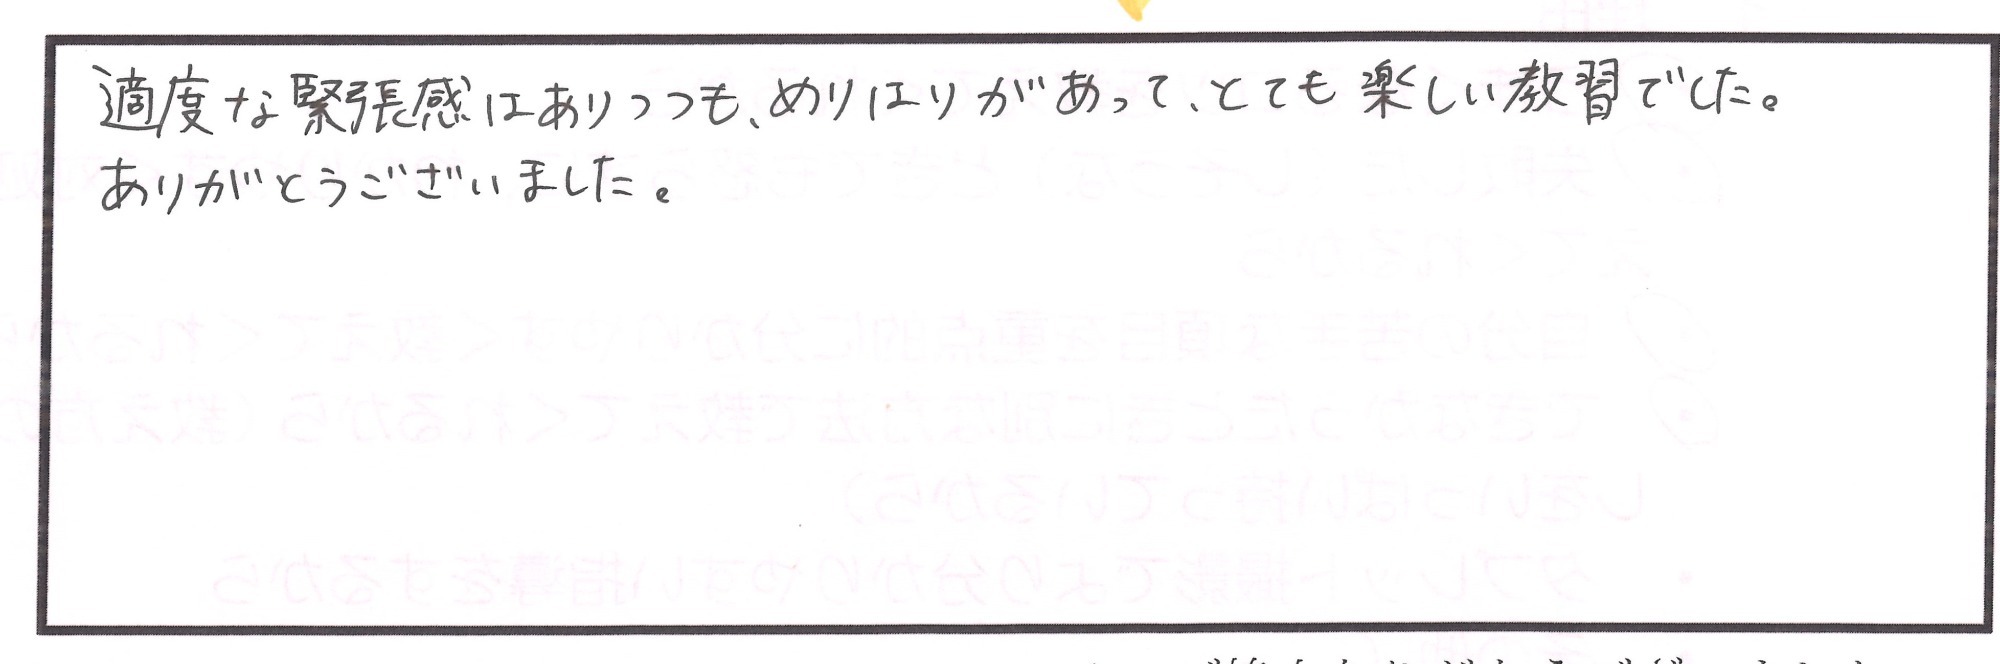 適度な緊張感はありつつも、めりはりがあって、とても楽しい教習でした。
ありがとうございました。